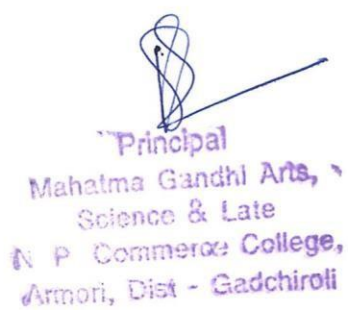 Principal
Mahatma Gandhi Arts,
Science & Late
N P Commerce College,
Armori, Dist - Gadchiroli